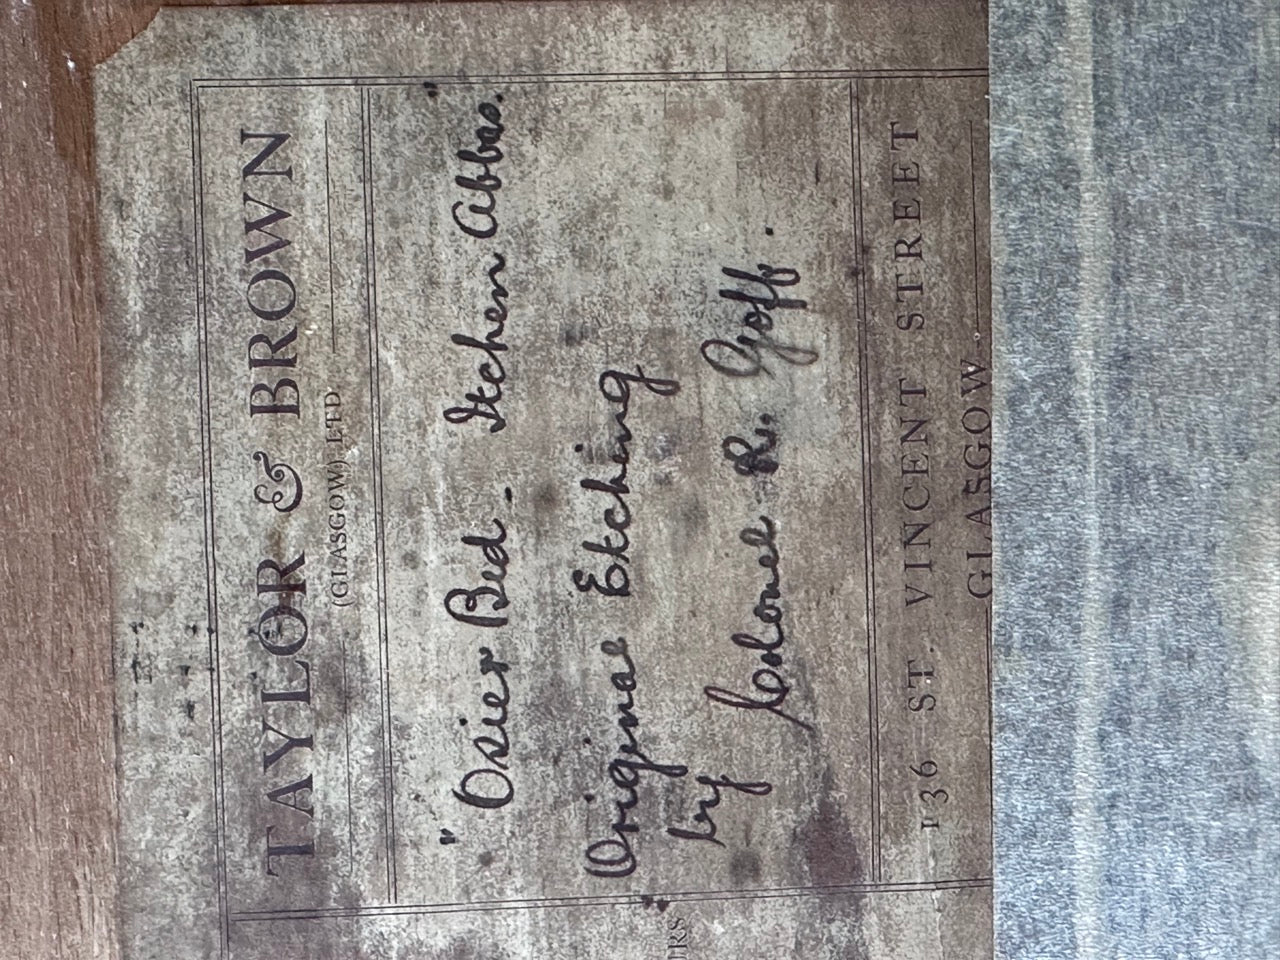 TAYLOR & BROWN
(GLASGOW) LTD
"Osier Bed. Itchen Abbas."
Original Etching
by Colonel R. Goff.
136 ST. VINCENT STREET
GLASGOW